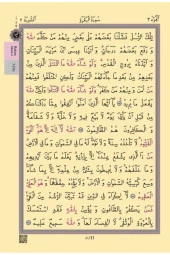 سُورَةُ البَقَرَةِ
تِلْكَ الرُّسُلُ فَضَّلْنَا بَعْضَهُمْ عَلَىٰ بَعْضٍ مِّنْهُم مَّن كَلَّمَ اللَّهُ
وَرَفَعَ بَعْضَهُمْ دَرَجَاتٍ وَآتَيْنَا عِيسَى ابْنَ مَرْيَمَ الْبَيِّنَاتِ
وَأَيَّدْنَاهُ بِرُوحِ الْقُدُسِ وَلَوْ شَاءَ اللَّهُ مَا اقْتَتَلَ الَّذِينَ مِن
بَعْدِهِم مِّن بَعْدِ مَا جَاءَتْهُمُ الْبَيِّنَاتُ وَلَٰكِنِ اخْتَلَفُوا فَمِنْهُم
مَّنْ آمَنَ وَمِنْهُم مَّن كَفَرَ وَلَوْ شَاءَ اللَّهُ مَا اقْتَتَلُوا وَلَٰكِنَّ اللَّهَ
يَفْعَلُ مَا يُرِيدُ يَا أَيُّهَا الَّذِينَ آمَنُوا أَنفِقُوا مِمَّا رَزَقْنَاكُم
مِّن قَبْلِ أَن يَأْتِيَ يَوْمٌ لَّا بَيْعٌ فِيهِ وَلَا خُلَّةٌ وَلَا شَفَاعَةٌ
وَالْكَافِرُونَ هُمُ الظَّالِمُونَ اللَّهُ لَا إِلَٰهَ إِلَّا هُوَ الْحَيُّ الْقَيُّومُ
لَا تَأْخُذُهُ سِنَةٌ وَلَا نَوْمٌ لَّهُ مَا فِي السَّمَاوَاتِ وَمَا فِي الْأَرْضِ
مَن ذَا الَّذِي يَشْفَعُ عِندَهُ إِلَّا بِإِذْنِهِ يَعْلَمُ مَا بَيْنَ أَيْدِيهِمْ
وَمَا خَلْفَهُمْ وَلَا يُحِيطُونَ بِشَيْءٍ مِّنْ عِلْمِهِ إِلَّا بِمَا شَاءَ
وَسِعَ كُرْسِيُّهُ السَّمَاوَاتِ وَالْأَرْضَ وَلَا يَئُودُهُ حِفْظُهُمَا وَهُوَ الْعَلِيُّ
الْعَظِيمُ لَا إِكْرَاهَ فِي الدِّينِ قَد تَّبَيَّنَ الرُّشْدُ مِنَ الْغَيِّ
فَمَن يَكْفُرْ بِالطَّاغُوتِ وَيُؤْمِن بِاللَّهِ فَقَدِ اسْتَمْسَكَ
بِالْعُرْوَةِ الْوُثْقَىٰ لَا انفِصَامَ لَهَا وَاللَّهُ سَمِيعٌ عَلِيمٌ